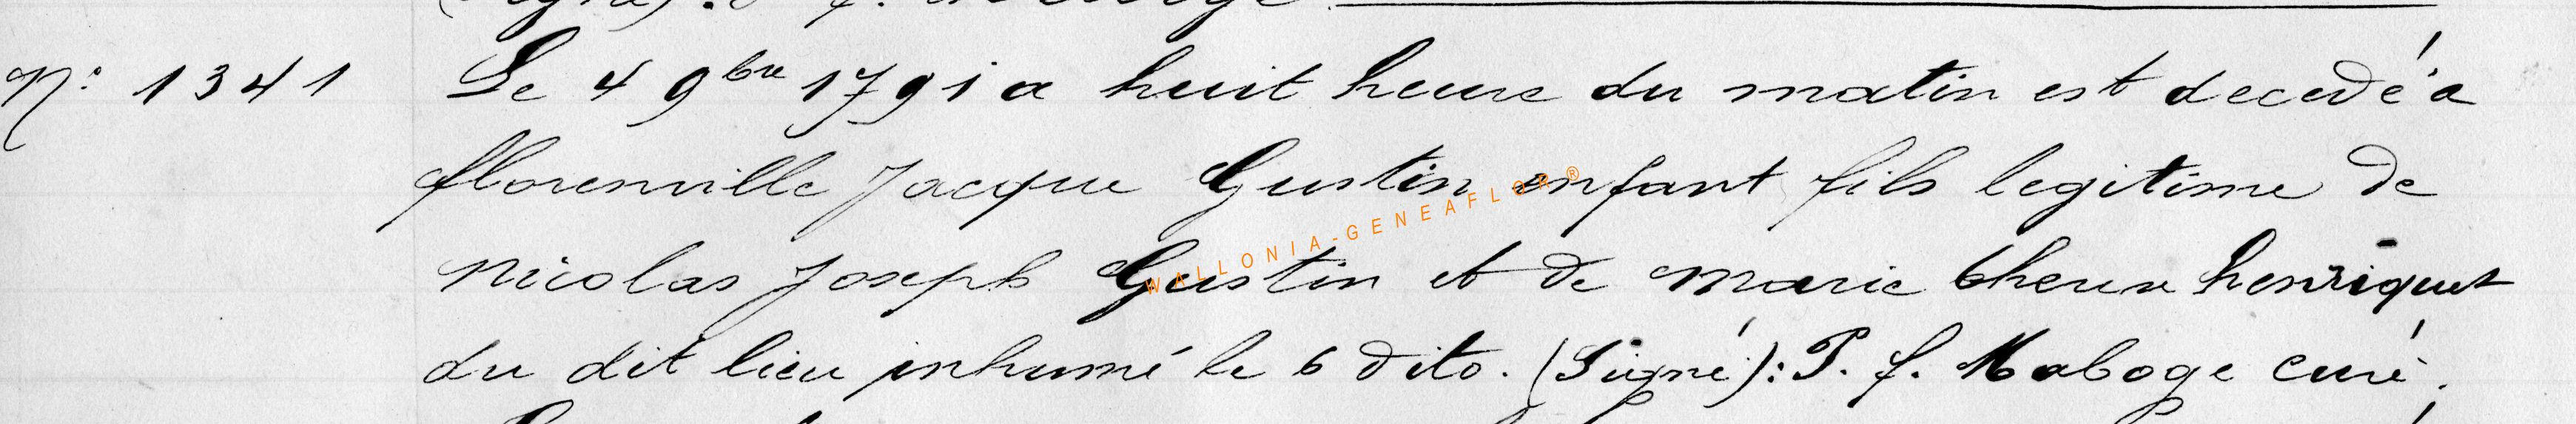 N° 1341 Le 4 9bre 1791 a huit heure du matin est decedé a
florenville Jacque Gustin enfant fils legitime de
WALLONIA-GENEAFLOR®
Nicolas Joseph Gustin et de marie therese henriquet
du dit lieu inhumé le 6 dito. (Signé): P. f. Maboge curé.